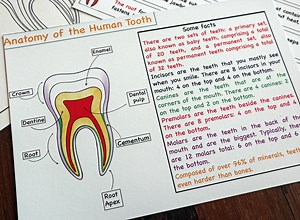 Anatomy of the Human Tooth
Enamel
Crown
Dental
pulp
Dentine
Cementum
Root
Root
Apex
Some facts
There are two sets of teeth: a primary set,
also known as baby teeth, comprising a total
of 20 teeth, and a permanent set, also
known as permanent teeth comprising a total
of 32 teeth.
Incisors are the teeth that you mostly see
when you smile. There are 8 incisors in your
mouth: 4 on the top and 4 on the bottom.
Canines are the teeth that are at the
corners of the mouth. There are 4 canines: 2
on the top and 2 on the bottom.
Premolars are the teeth beside the canines.
There are 8 premolars: 4 on the top and 4
on the bottom.
Molars are the teeth in the back of the
mouth and are the biggest. Typically, there
are 12 molars total: 6 on the top and 6
on the bottom.
Composed of over 96% of minerals, teeth
even harder than bones.